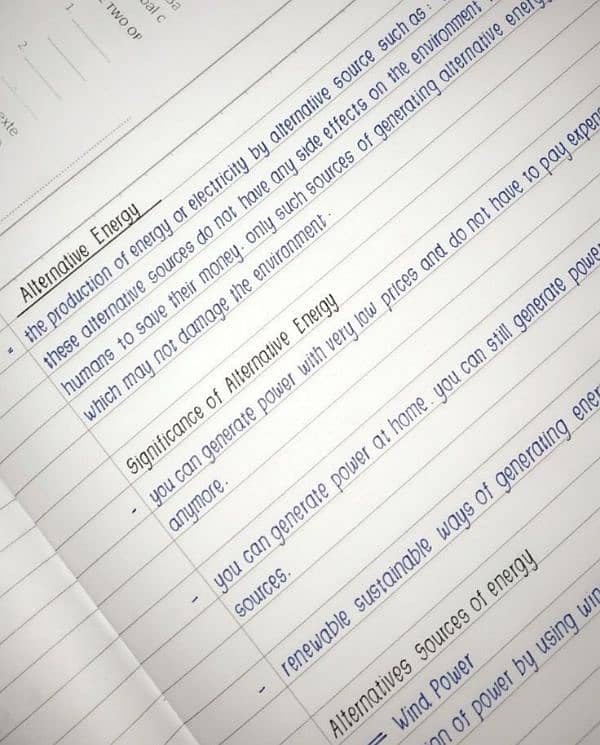 bal c
1.
TWO OR
2.
Alternative Energy
= the production of energy or electricity by alternative source such as :
these alternative sources do not have any side effects on the environment
humans to save their money. only such sources of generating alternative
which may not damage the environment.
Significance of Alternative Energy
- you can generate power with very low prices and do not have to pay
anymore.
- you can generate power at home . you can still generate
sources.
- renewable sustainable ways of generating
Alternatives Sources of energy
= Wind Power
of power by using